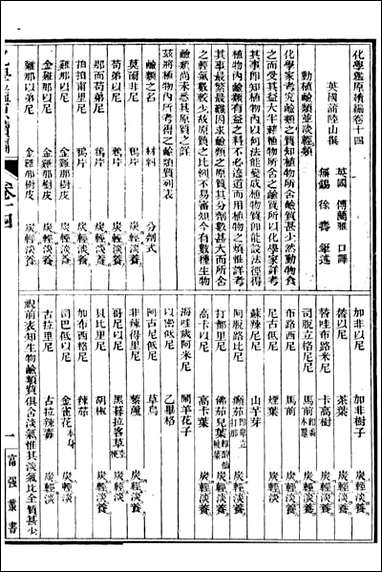 化學鑑原續編卷十四
英國蒲陸山撰
英國 傅蘭雅 口譯
無錫 徐壽 筆述
動植鹼類並淡輕類
化學家考究鹼類之質知植物所含鹼質甚少然動物食
之而受其益大半藉植物所含之鹼質以化學家詳考
其事即知植物內以何法能變成植物質即能設法徑得
植物內鹼類有益之料不必遠道而用植物之煩惟詳考
其事最繁最難因求鹼類之原質其分劑數甚大而所含
之輕氣數較少故原質之比例不易審知今有數種生物
鹼類尚未悉其原質之詳
茲將植物內所考得之鹼類質列表
鹼類之名 材料 分劑式
莫爾非尼 鴉片 炭輕淡養
那而苟弟尼 鴉片 炭輕淡養
鷄那以尼 金雞那樹皮 炭輕淡養
金雞那以尼 金雞那樹皮 炭輕淡養
金雞那以弟尼 金雞那樹皮
加非以尼 加非樹子 炭輕淡養
替以尼 茶葉 炭輕淡養
替哇布路米尼 卡高樹 炭輕淡養
司脫立格尼尼 馬前 炭輕淡養
布路西尼 馬前 炭輕淡養
尼古低尼 煙葉 炭輕淡
蘇辣尼尼 山芋芽 炭輕淡養
阿脫路比尼 炭輕淡養
打都里尼
高卡以尼 高卡葉 炭輕淡養
海哇歲阿米尼 鬧羊花子
以密低尼 乙畢格
阿古尼低尼 草烏
非辣得里尼 藜蘆 炭輕淡養
哥尼以尼 炭輕淡
貝比里尼 胡椒 炭輕淡養
加布西格尼 辣茄
司巴低以尼 金雀花 炭輕淡
古拉里尼 古拉辣毒 炭輕淡
觀前表知生物鹼類質俱含淡氣惟其淡氣比全質甚少
卷十四
一
富强叢書